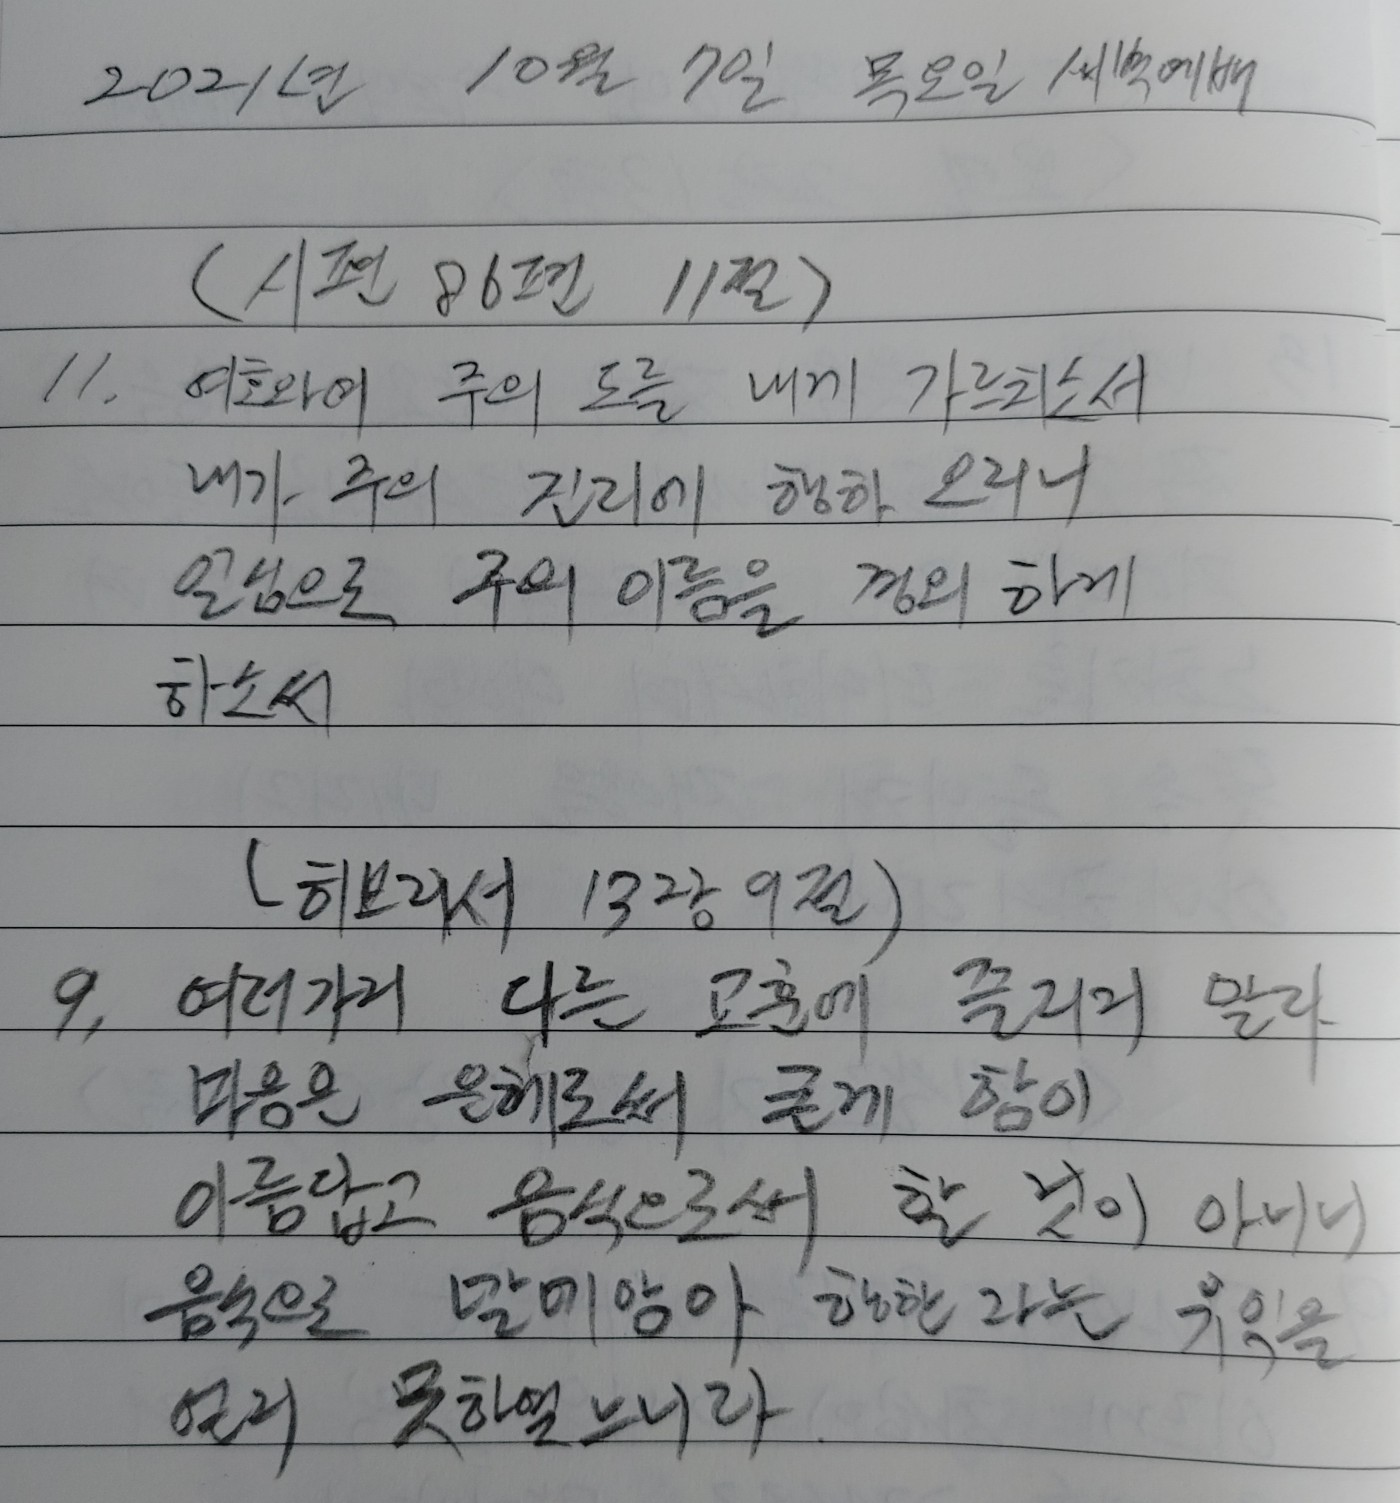 2021년 10월 7일 목요일 새벽예배
(시편 86편 11절)
11. 여호와여 주의 도를 내게 가르치소서
내가 주의 진리에 행하 오리니
일심으로 주의 이름을 경외 하게
하소서
(히브리서 13장 9절)
9. 여러가지 다른 교훈에 끌리지 말라
마음은 은혜로써 굳게 함이
아름답고 음식으로써 할 것이 아니니
음식으로 말미암아 행한 자는 유익을
얻지 못하였느니라